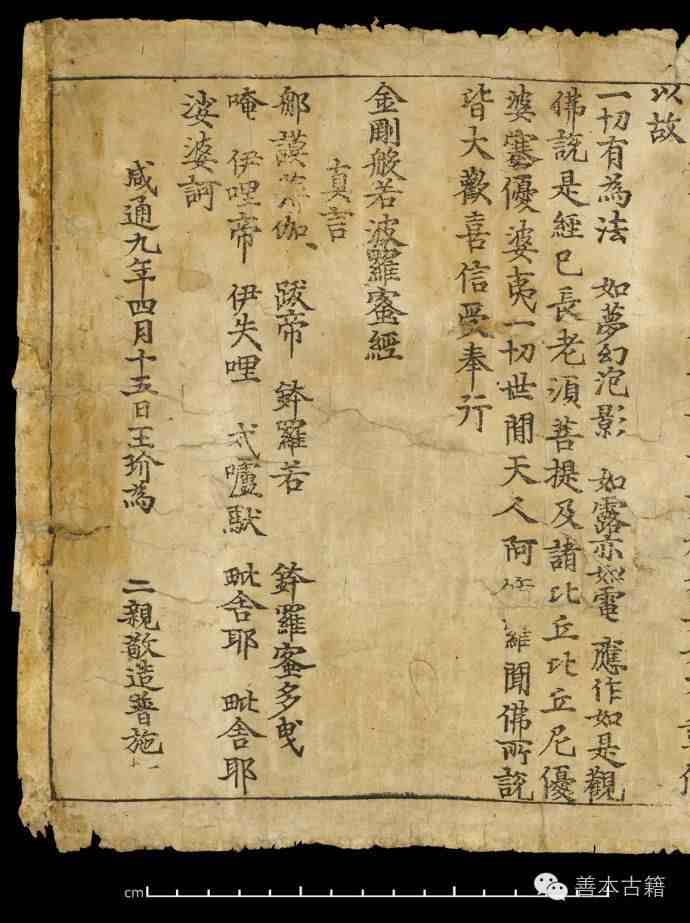 以故
一切有為法 如夢幻泡影 如露亦如電 應作如是觀
佛說是經已長老湏菩提及諸比丘比丘尼優
婆塞優婆夷一切世間天人阿脩羅聞佛所說
皆大歡喜信受奉行
金剛般若波羅蜜經
真言
那謨婆伽 跋帝 鉢羅若 鉢羅蜜多曳
唵 伊哩帝 伊失哩 式嚧馱 毗舍耶 毗舍耶
娑婆訶
咸通九年四月十五日王玠為 二親敬造普施
cm
善本古籍